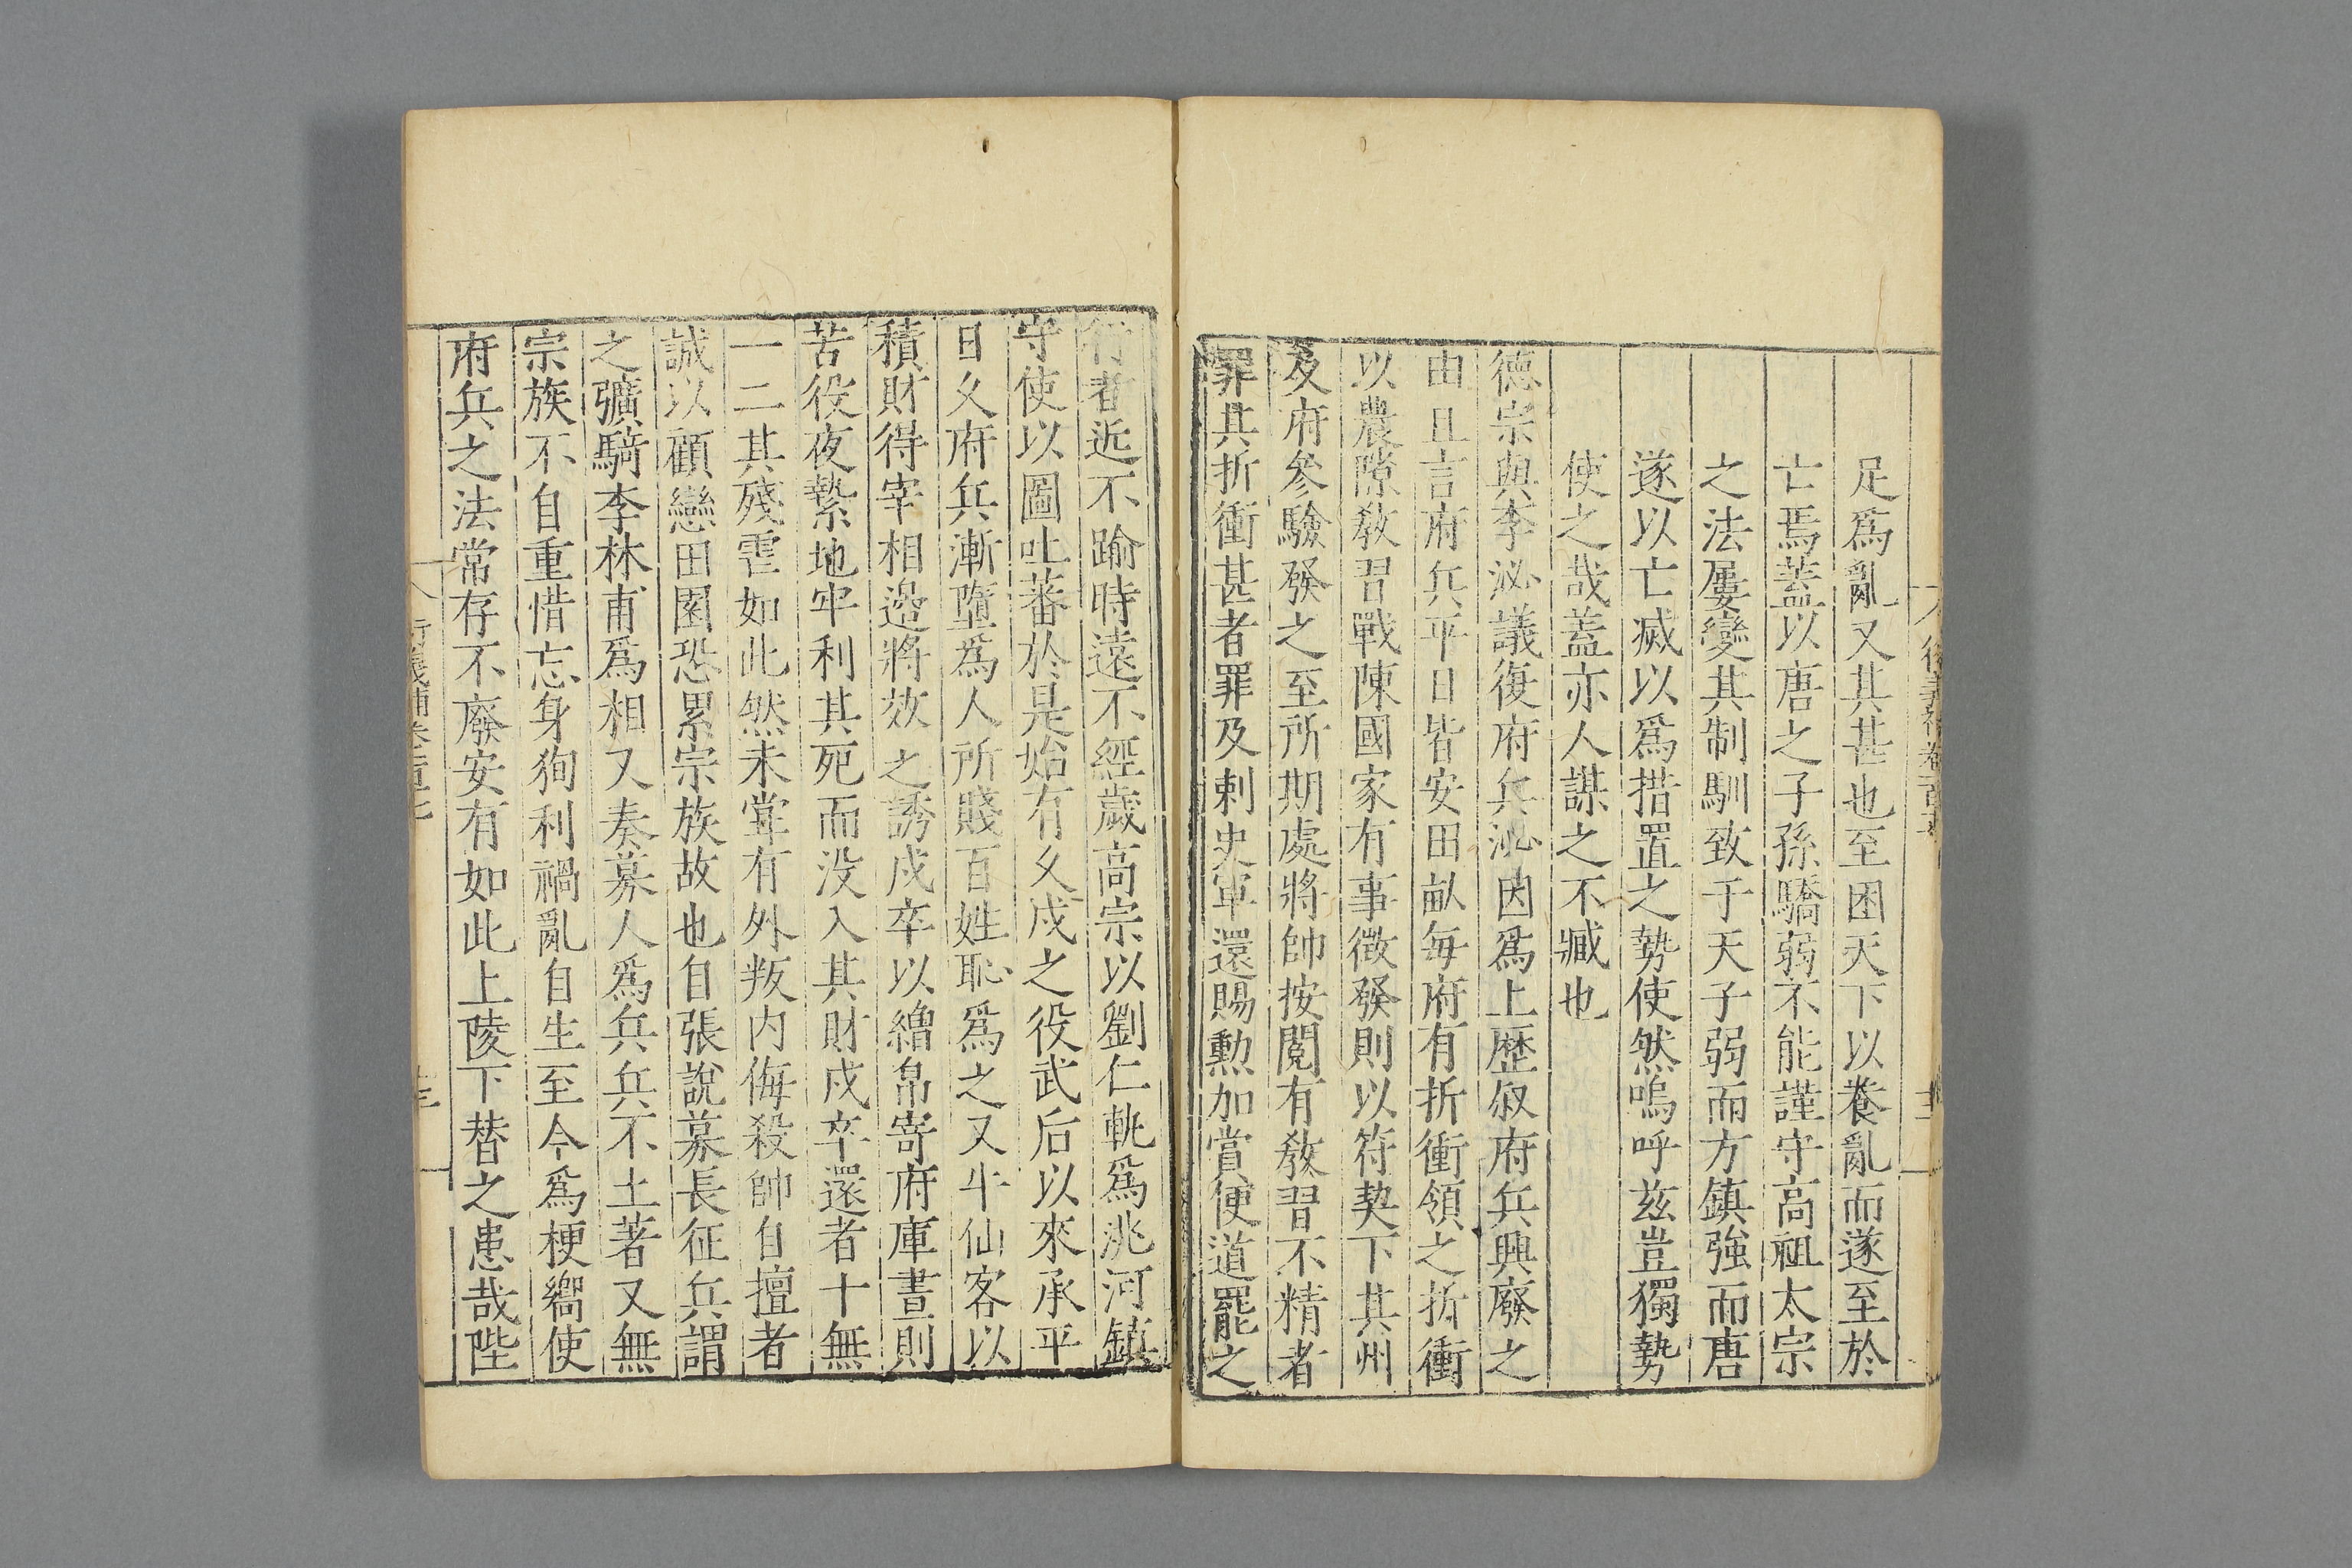 足爲亂又其甚也至困天下以養亂而遂至於
亡焉蓋以唐之子孫驕弱不能謹守高祖太宗
之法屢變其制馴致于天子弱而方鎮強而唐
遂以亡滅以爲措置之勢使然嗚呼兹豈獨勢
使之哉蓋亦人謀之不臧也
德宗與李泌議復府兵泌因爲上歷叙府兵興廢之
由且言府兵平日皆安田畝每府有折衝領之折衝
以農隙敎習戰陳國家有事徵發則以符契下其州
及府參驗發之至所期處將帥按閱有敎習不精者
罪其折衝甚者罪及刺史軍還賜勲加賞便道罷之
行者近不踰時遠不經歲高宗以劉仁軌爲洮河鎮
守使以圖吐蕃於是始有久戍之役武后以來承平
日久府兵漸墮爲人所賤百姓恥爲之又牛仙客以
積財得宰相邊將效之誘戍卒以繒帛寄府庫晝則
苦役夜縶地牢利其死而没入其財戍卒還者十無
一二其殘虐如此然未甞有外叛内侮殺帥自擅者
誠以顧戀田園恐累宗族故也自張說募長征兵謂
之彍騎李林甫爲相又奏募人爲兵兵不土著又無
宗族不自重惜忘身狥利禍亂自生至今爲梗嚮使
府兵之法常存不廢安有如此上陵下替之患哉陛